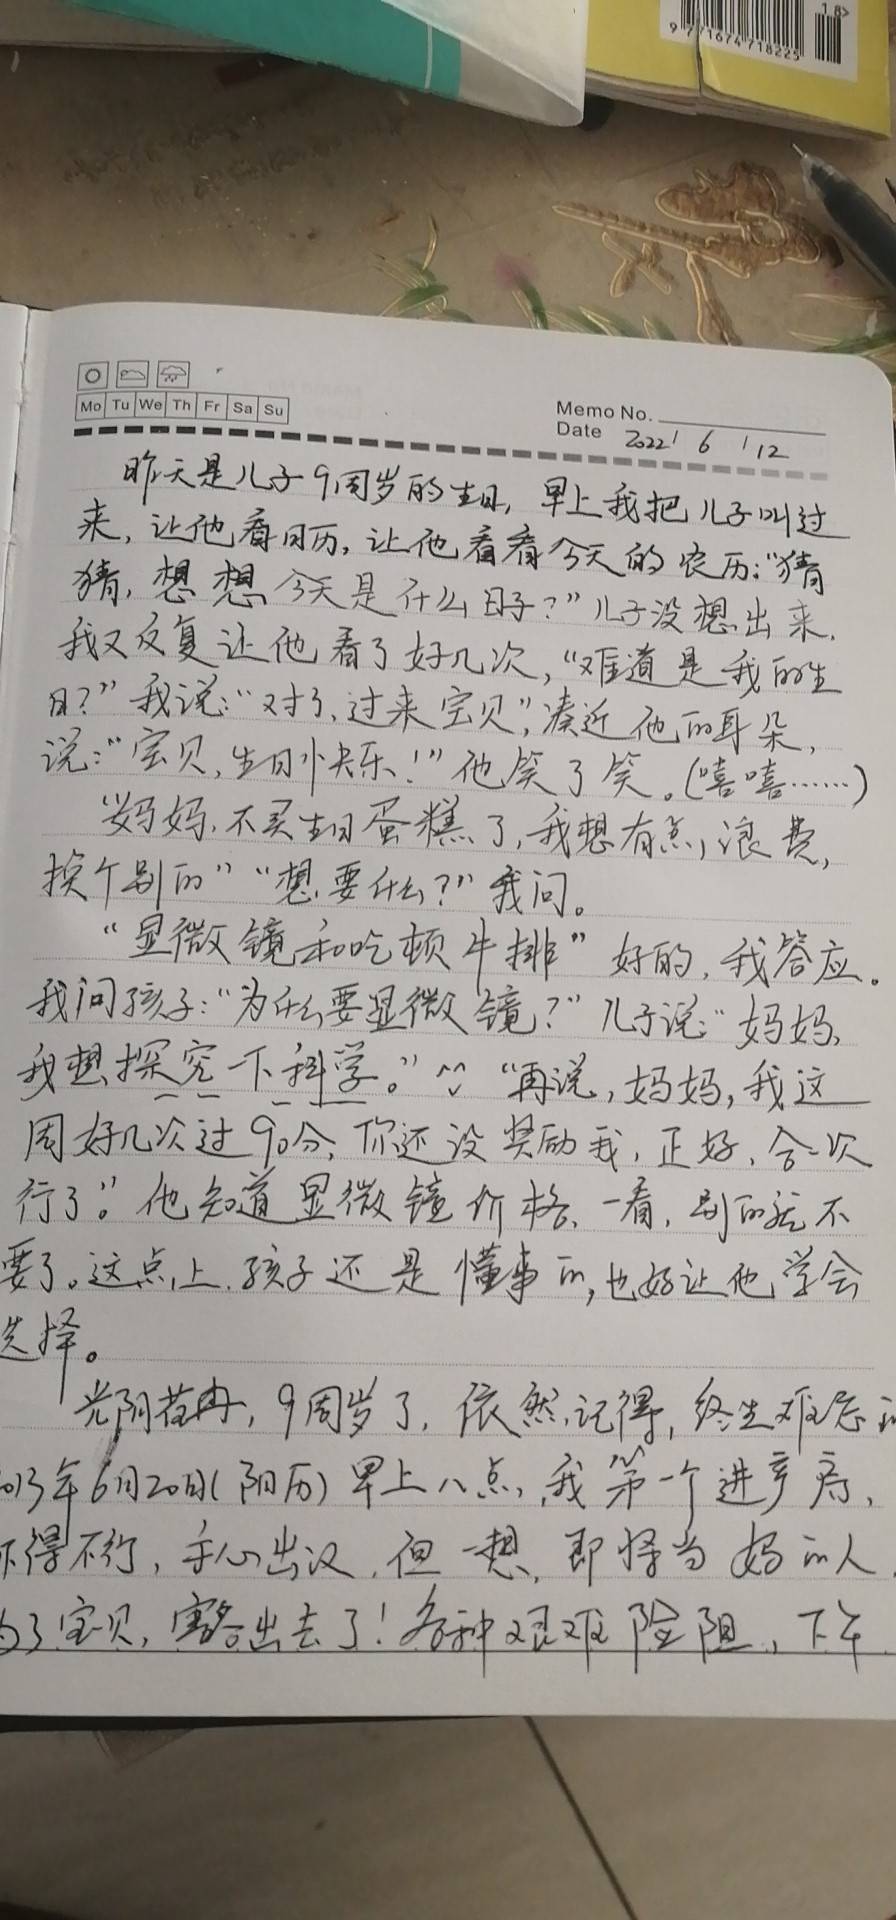 18>
9 771674 718225
Mo Tu We Th Fr Sa Su
Memo No.
Date 2022/ 6 / 12
昨天是儿子9周岁的生日,早上我把儿子叫过
来,让他看日历,让他看看今天的农历:“猜
猜,想想今天是什么日子?”儿子没想出来.
我又反复让他看了好几次,“难道是我的生
日?”我说:“对了,过来宝贝”,凑近他的耳朵,
说:“宝贝,生日快乐!”他笑了笑。(嘻嘻……)
“妈妈,不买生日蛋糕了,我想有点浪费,
换个别的”“想要什么?”我问。
“显微镜和吃顿牛排”好的,我答应。
我问孩子:“为什么要显微镜?”儿子说:“妈妈,
我想探究一下科学。”^^“再说,妈妈,我这
周好几次过90分,你还没奖励我,正好,合一次
行了。”他知道显微镜价格,一看,别的就不
要了。这点上,孩子还是懂事的,也好让他学会
选择。
光阴荏冉,9周岁了,依然记得,终生难忘的
2013年6月20日(阳历)早上八点,我第一个进产房,
不得不行,手心出汉,但一想,即将当妈的人,
为了宝贝,豁出去了!各种艰难险阻,下午